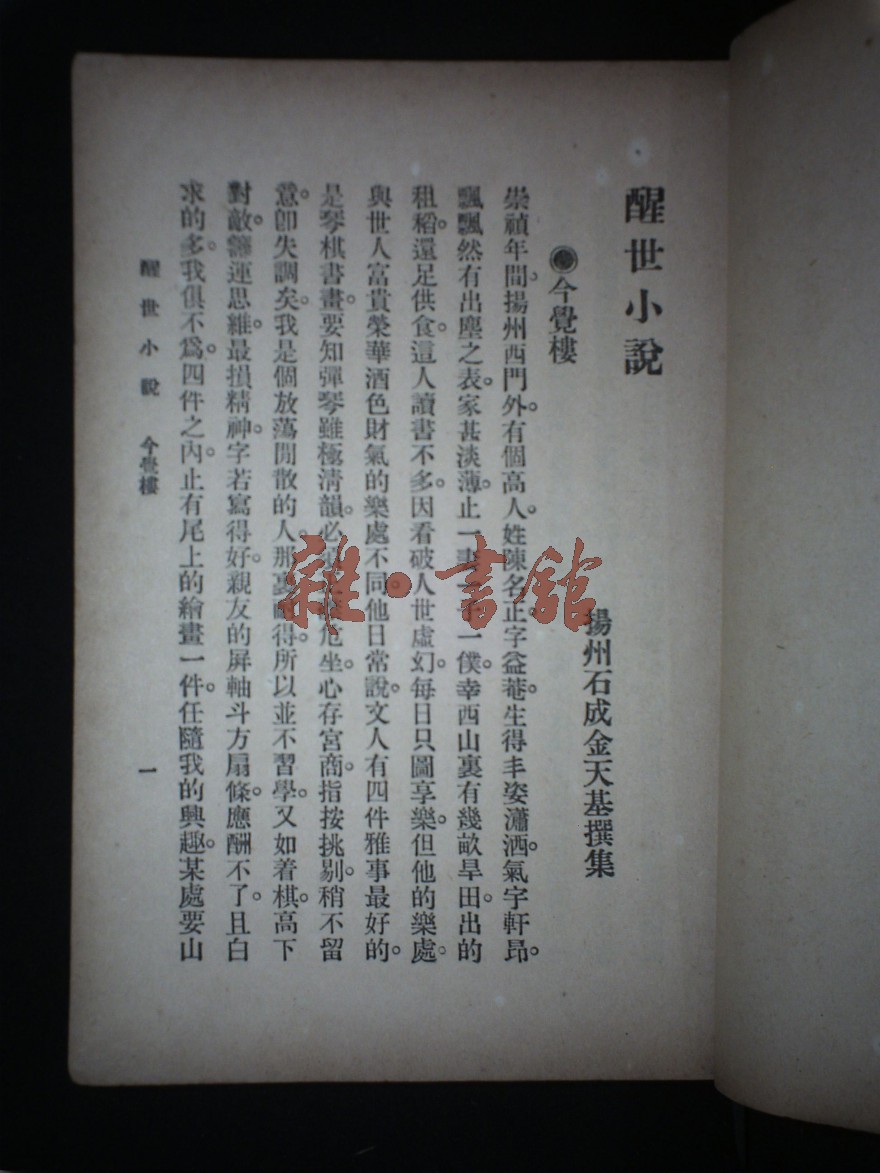 醒世小說
揚州石成金天基撰集
今覺樓
崇禎年間揚州西門外。有個高人。姓陳名正字益菴。生得丰姿瀟洒。氣宇軒昂。
飄飄然有出塵之表。家甚淡薄。止一妻一僕。幸西山裏有幾畝旱田。出的
租稻。還足供食。這人讀書不多。因看破人世虛幻。每日只圖享樂。但他的樂處。
與世人富貴榮華酒色財氣的樂處不同。他日常說。文人有四件雅事最好的。
是琴棋書畫。要知彈琴雖極清韻。必危坐。心存宮商。指按挑剔。稍不留
意。卽失調矣。我是個放蕩閒散的人。那裏得。所以並不習學。又如着棋。高下
對敵。運思維。最損精神。字若寫得好。親友的屏軸斗方扇條。應酬不了。且白
求的多。我俱不為。四件之內。止有尾上的繪畫一件。任隨我的興趣。某處要山
醒世小說 今覺樓
一
雜·書館